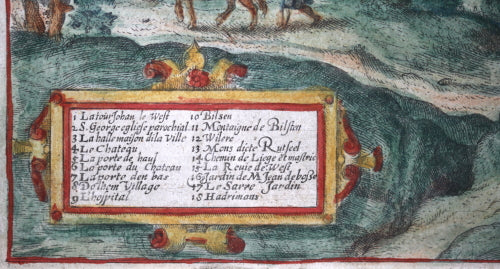 1 La tour Johan le West
2 S. George eglise parochial
3 La halle maison di la Ville
4 Le Chateau
5 La porte de haut
6 La porte du Chateau
7 La porte den bas
8 Dolhem Villago
9 L'hospital
10 Bilsen
11 Montaigne de Bilsten
12 Wilere
13 Mons dicte Rutseel
14 Chemin de Liege et mastric
15 La Reuie de West
16 Jardin de M. Jean de bosse
17 Le Sarre Jardin
18 Hadrimans